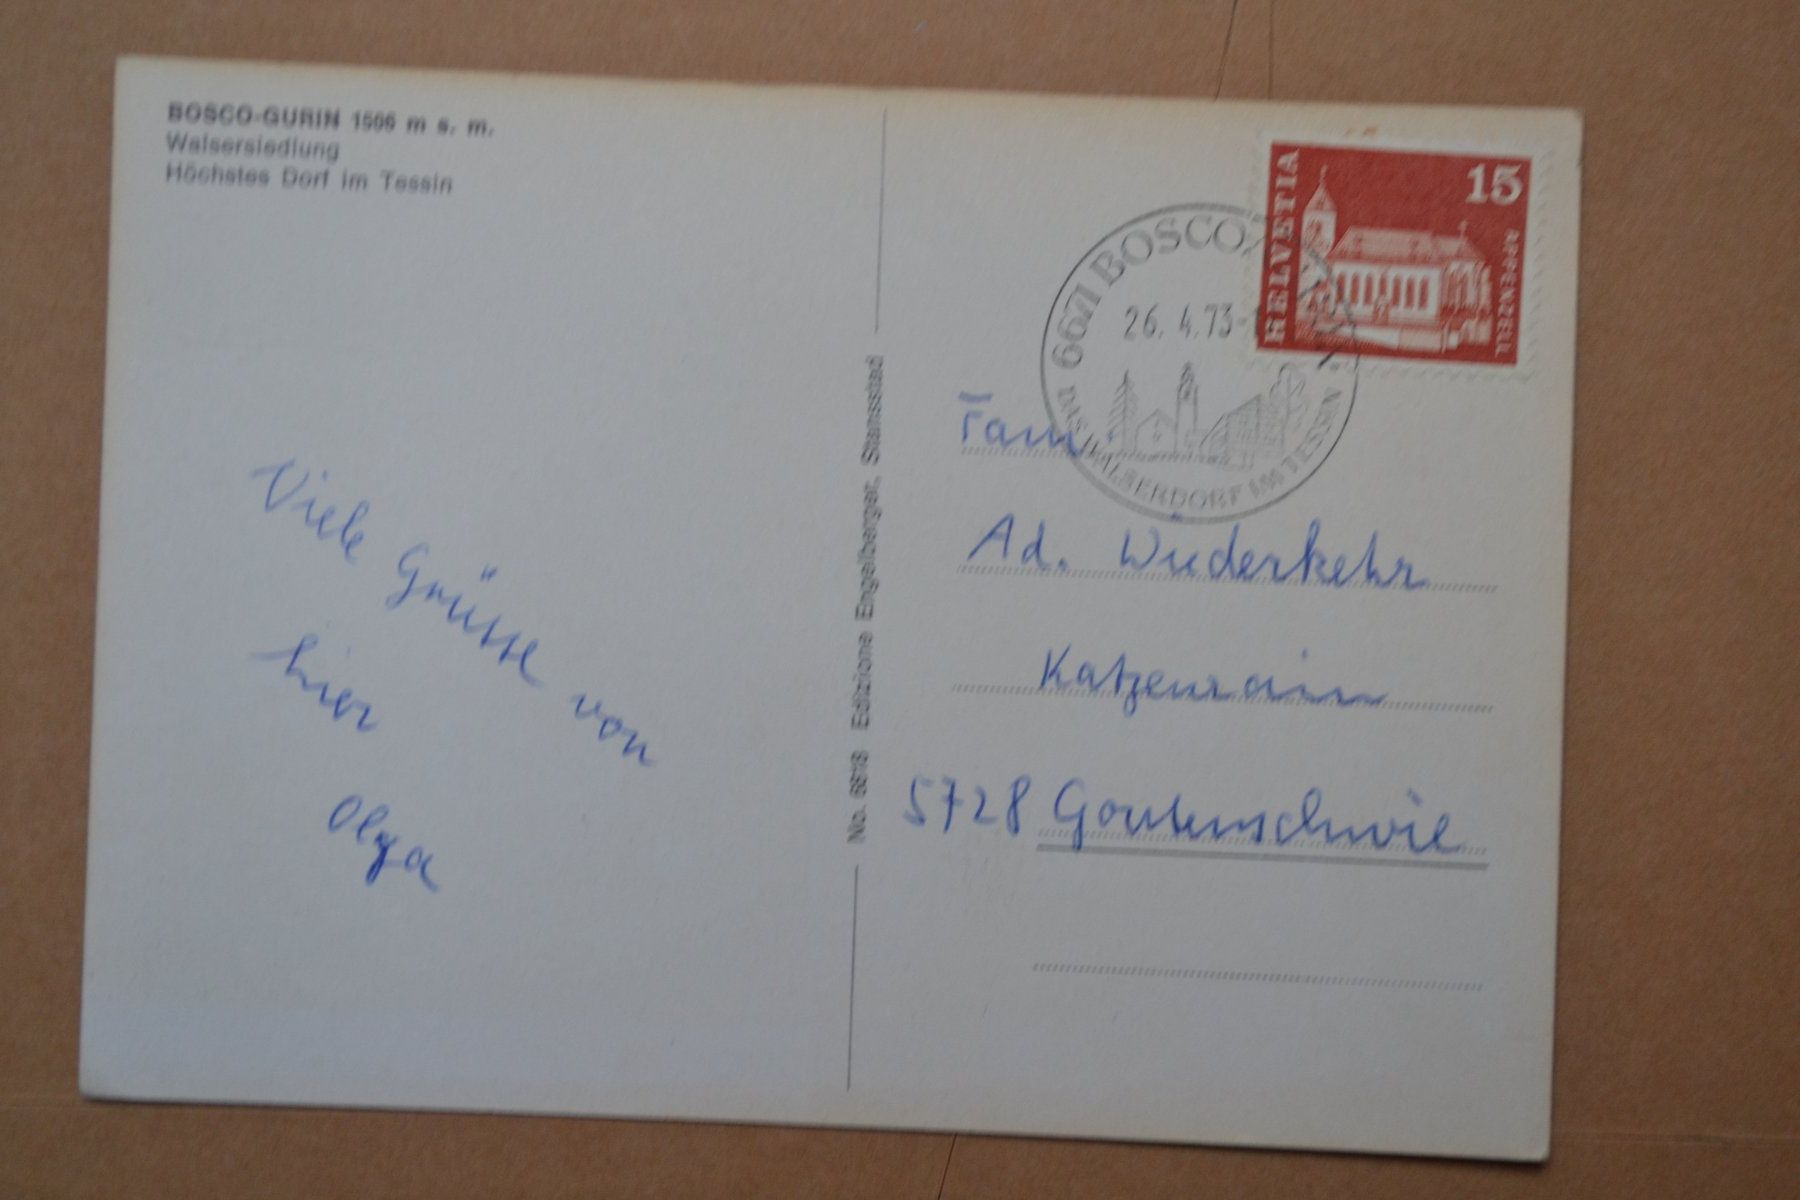 BOSCO-GURIN 1506 m s. m.
Walsersiedlung
Höchstes Dorf im Tessin
Viele Grüsse von
hier
Olga
No. 6618 Edizione Engelberger, Stansstad
HELVETIA
15
APPENZELL
6671 BOSCO
26. 4.73
DAS WALSERDORF IM TESSIN
Fam.
Ad. Wiederkehr
Katzenrain
5728 Gontenschwil